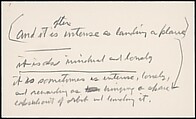 often
(and it is intense as landing a plane)
it is also individual and lonely
it is sometimes as intense, lonely,
and rewarding as bringing a space
out of orbit and landing it.